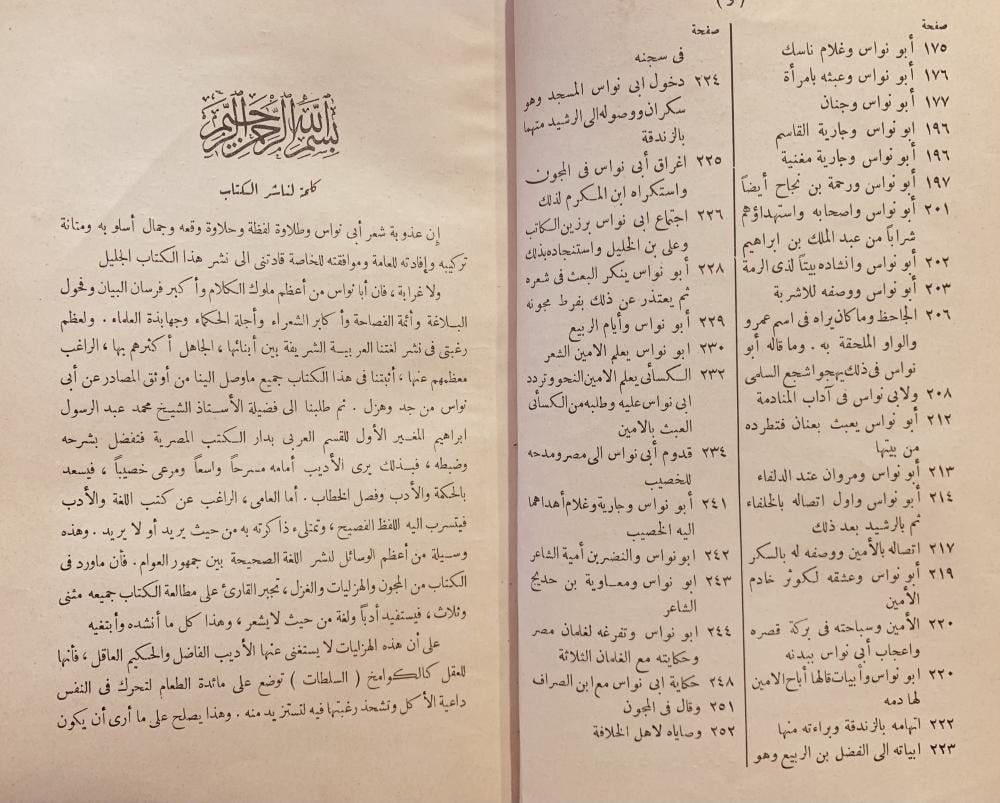 (و)
صفحة
١٧٥ أبو نواس وغلام ناسك
١٧٦ أبو نواس وعبثه بامرأة
١٧٧ أبو نواس وجنان
١٩٦ ابو نواس وجارية القاسم
١٩٦ أبو نواس وجارية مغنية
١٩٧ أبو نواس ورحمة بن نجاح أيضاً
٢٠١ أبو نواس واصحابه واستهداؤهم
شراباً من عبد الملك بن ابراهيم
٢٠٢ أبو نواس وانشاده بيتاً لذى الرمة
٢٠٣ أبو نواس ووصفه للاشربة
٢٠٦ الجاحظ وما كان يراه فى اسم عمرو
والواو الملحقة به . وما قاله أبو
نواس فى ذلك يهجو اشجع السلمى
٢٠٨ ولابى نواس فى آداب المنادمة
٢١٢ أبو نواس يعبث بعنان فتطرده
من بيتها
٢١٣ أبو نواس ومروان عند الدلفاء
٢١٤ أبو نواس واول اتصاله بالخلفاء
ثم بالرشيد بعد ذلك
٢١٧ اتصاله بالأمين ووصفه له بالسكر
٢١٩ أبو نواس وعشقه لكوثر خادم
الأمين
٢٢٠ الأمين وسباحته فى بركة قصره
واعجاب أبى نواس ببدنه
٢٢٠ ابو نواس وأبيات قالها أباح الامين
لها دمه
٢٢٢ اتهامه بالزندقة وبراءته منها
٢٢٣ ابياته الى الفضل بن الربيع وهو
صفحة
فى سجنه
٢٢٤ دخول ابى نواس المسجد وهو
سكران ووصوله الى الرشيد متهما
بالزندقة
٢٢٥ اغراق أبى نواس فى المجون
واستكراه ابن المكرم لذلك
٢٢٦ اجتماع ابى نواس برزين الكاتب
وعلى بن الخليل واستنجاده بذلك
٢٢٨ أبو نواس ينكر البعث فى شعره
ثم يعتذر عن ذلك بفرط مجونه
٢٢٩ أبو نواس وأيام الربيع
٢٣٠ ابو نواس يعلم الامين الشعر
٢٣٢ الكسائى يعلم الامين النحو وتردد
ابى نواس عليه وطلبه من الكسائى
العبث بالامين
٢٣٤ قدوم أبى نواس الى مصر ومدحه
للخصيب
٢٤١ أبو نواس وجارية وغلام أهداهما
اليه الخصيب
٢٤٢ ابو نواس والنضر بن أمية الشاعر
٢٤٣ ابو نواس ومعاوية بن حديج
الشاعر
٢٤٤ ابو نواس وتفرغه لغلمان مصر
وحكايته مع الغلمان الثلاثة
٢٤٨ حكاية ابى نواس مع ابن الصراف
٢٥١ وقال فى المجون
٢٥٢ وصاياه لاهل الخلافة
بسم الله الرحمن الرحيم
كلمة لناشر الكتاب
إن عذوبة شعر أبى نواس وطلاوة لفظة وحلاوة وقعه وجمال أسلوبه ومتانة
تركيبه وإفادته للعامة وموافقته للخاصة قادتنى الى نشر هذا الكتاب الجليل
ولا غرابة ، فان أبا نواس من أعظم ملوك الكلام وأكبر فرسان البيان وفحول
البلاغة وأئمة الفصاحة وأكابر الشعراء وأجلة الحكماء وجهابذة العلماء . ولعظم
رغبتى فى نشر لغتنا العربية الشريفة بين أبنائها ، الجاهل أكثرهم بها ، الراغب
معظمهم عنها ، أثبتنا فى هذا الكتاب جميع ماوصل الينا من أوثق المصادر عن أبى
نواس من جد وهزل . ثم طلبنا الى فضيلة الأستاذ الشيخ محمد عبد الرسول
ابراهيم المغير الأول للقسم العربى بدار الكتب المصرية فتفضل بشرحه
وضبطه ، فبذلك يرى الأديب أمامه مسرحاً واسعاً ومرعى خصيباً ، فيسعد
بالحكمة والأدب وفصل الخطاب . أما العامى ، الراغب عن كتب اللغة والأدب
فيتسرب اليه اللفظ الفصيح ، وتمتلىء ذاكرته به من حيث يريد أو لا يريد . وهذه
وسيلة من أعظم الوسائل لنشر اللغة الصحيحة بين جمهور العوام . فأن ماورد فى
الكتاب من المجون والهزليات والغزل ، تجبر القارئ على مطالعة الكتاب جميعه مثنى
وثلاث ، فيستفيد أدباً ولغة من حيث لايشعر ، وهذا كل ما أنشده وأبتغيه
على أن هذه الهزليات لا يستغنى عنها الأديب الفاضل والحكيم العاقل ، فأنها
للعقل كالكوامخ ( السلطات ) توضع على مائدة الطعام لتحرك فى النفس
داعية الأكل وتشحذ رغبتها فيه لتستزيد منه . وهذا يصلح على ما أرى أن يكون